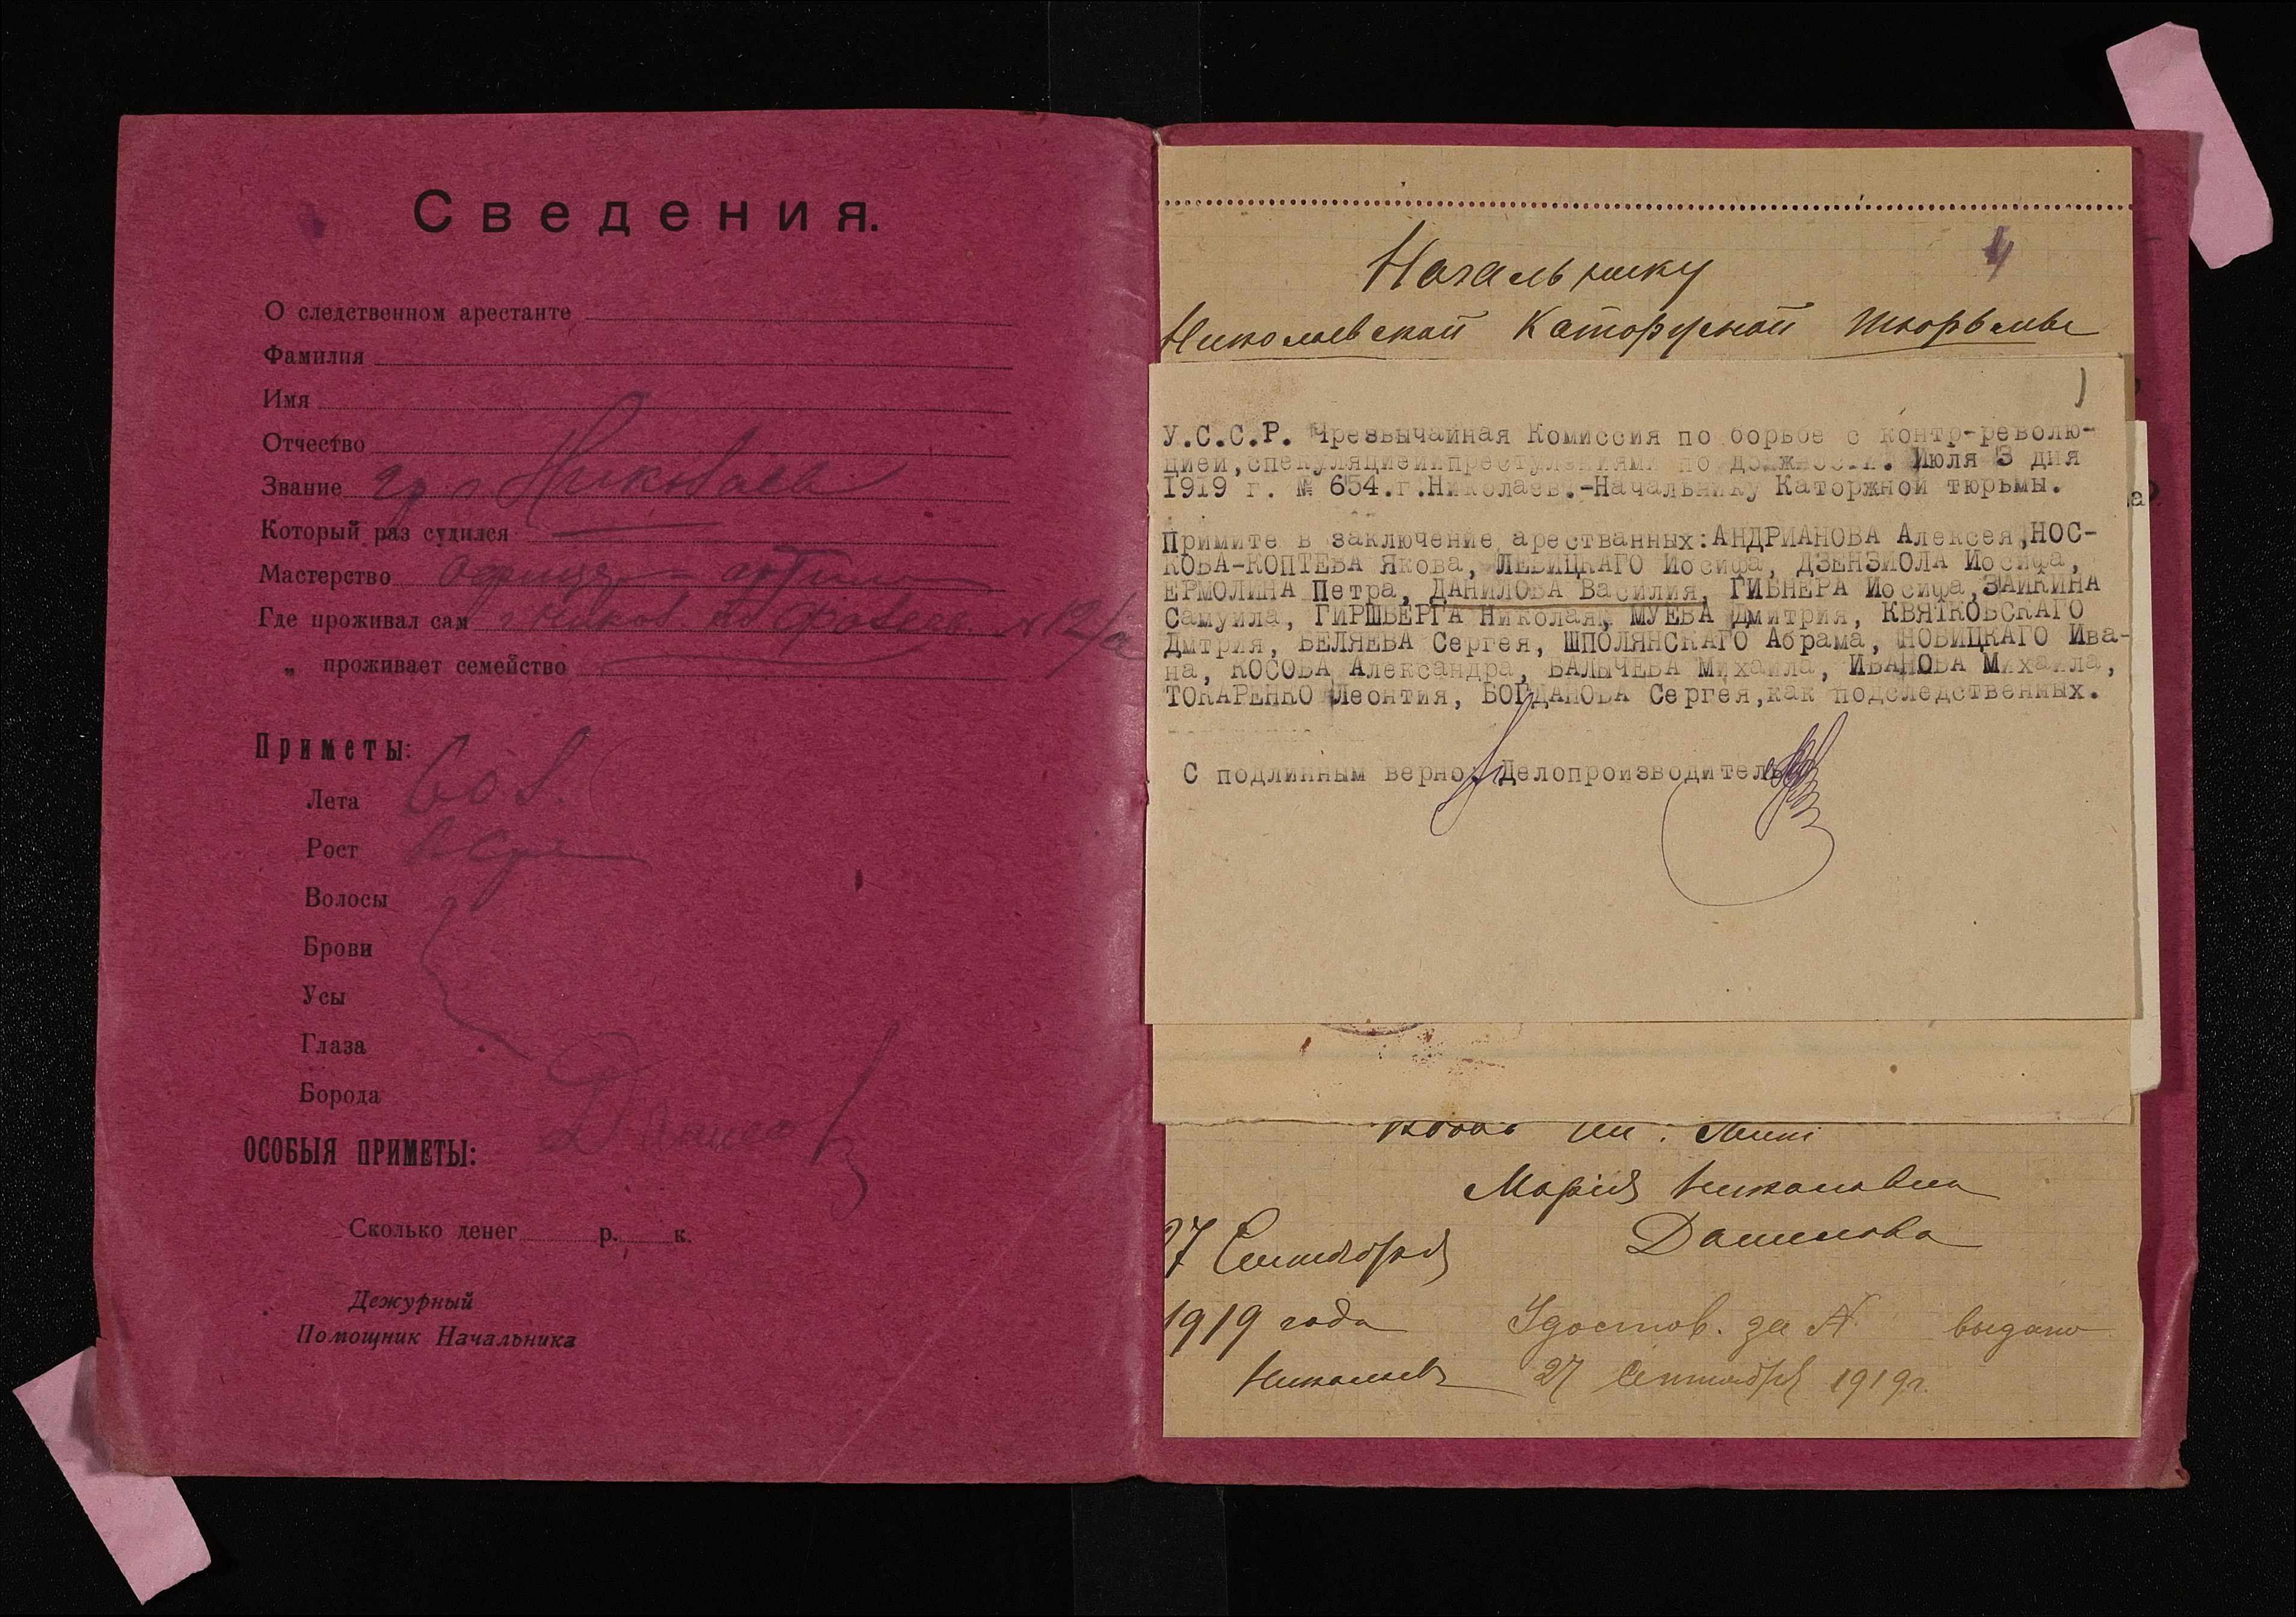 Сведения.
О следственном арестанте
Фамилия
Имя
Отчество
Звание гр. г. Николаев
Который раз судился
Мастерство офицер
Где проживал сам г. Никол. № 12/а
„ проживает семейство
Приметы:
Лета 60 л.
Рост в. сре
Волосы
Брови
Усы
Глаза
Борода
ОСОБЫЯ ПРИМЕТЫ:
Данилов
Сколько денег р. к.
Дежурный
Помощник Начальника
Начальнику
Николаевской Каторжной Тюрьмы
У.С.С.Р. Чрезвычайная Комиссия по борьбе с контр-револю-
цией,спекуляциейипреступлениями по должности. Июля 3 дня
1919 г. № 654.г.Николаев.-Начальнику Каторжной тюрьмы.
Примите в заключение арестванных:АНДРИАНОВА Алексея,НОС-
КОВА-КОПТЕВА Якова, ЛЕВИЦКАГО Иосифа, ДЗЕНЗИОЛА Иосифа,
ЕРМОЛИНА Петра, ДАНИЛОВА Василия, ГИБНЕРА Иосифа,ЗАИКИНА
Самуила, ГИРШБЕРГА Николая, МУЕВА Дмитрия, КВЯТКОВСКАГО
Дмтрия, БЕЛЯЕВА Сергея, ШПОЛЯНСКАГО Абрама, НОВИЦКАГО Ива-
на, КОСОВА Александра, БАЛЫЧЕВА Михаила, ИВАНОВА Михаила,
ТОКАРЕНКО Леонтия, БОГДАНОВА Сергея,как подследственных.
С подлинным верно: Делопроизводитель
Марія Николавна
Данилова
27 Сентября
1919 года
Удостов. за № выдано
Николаевъ 27 Сентября 1919 г.